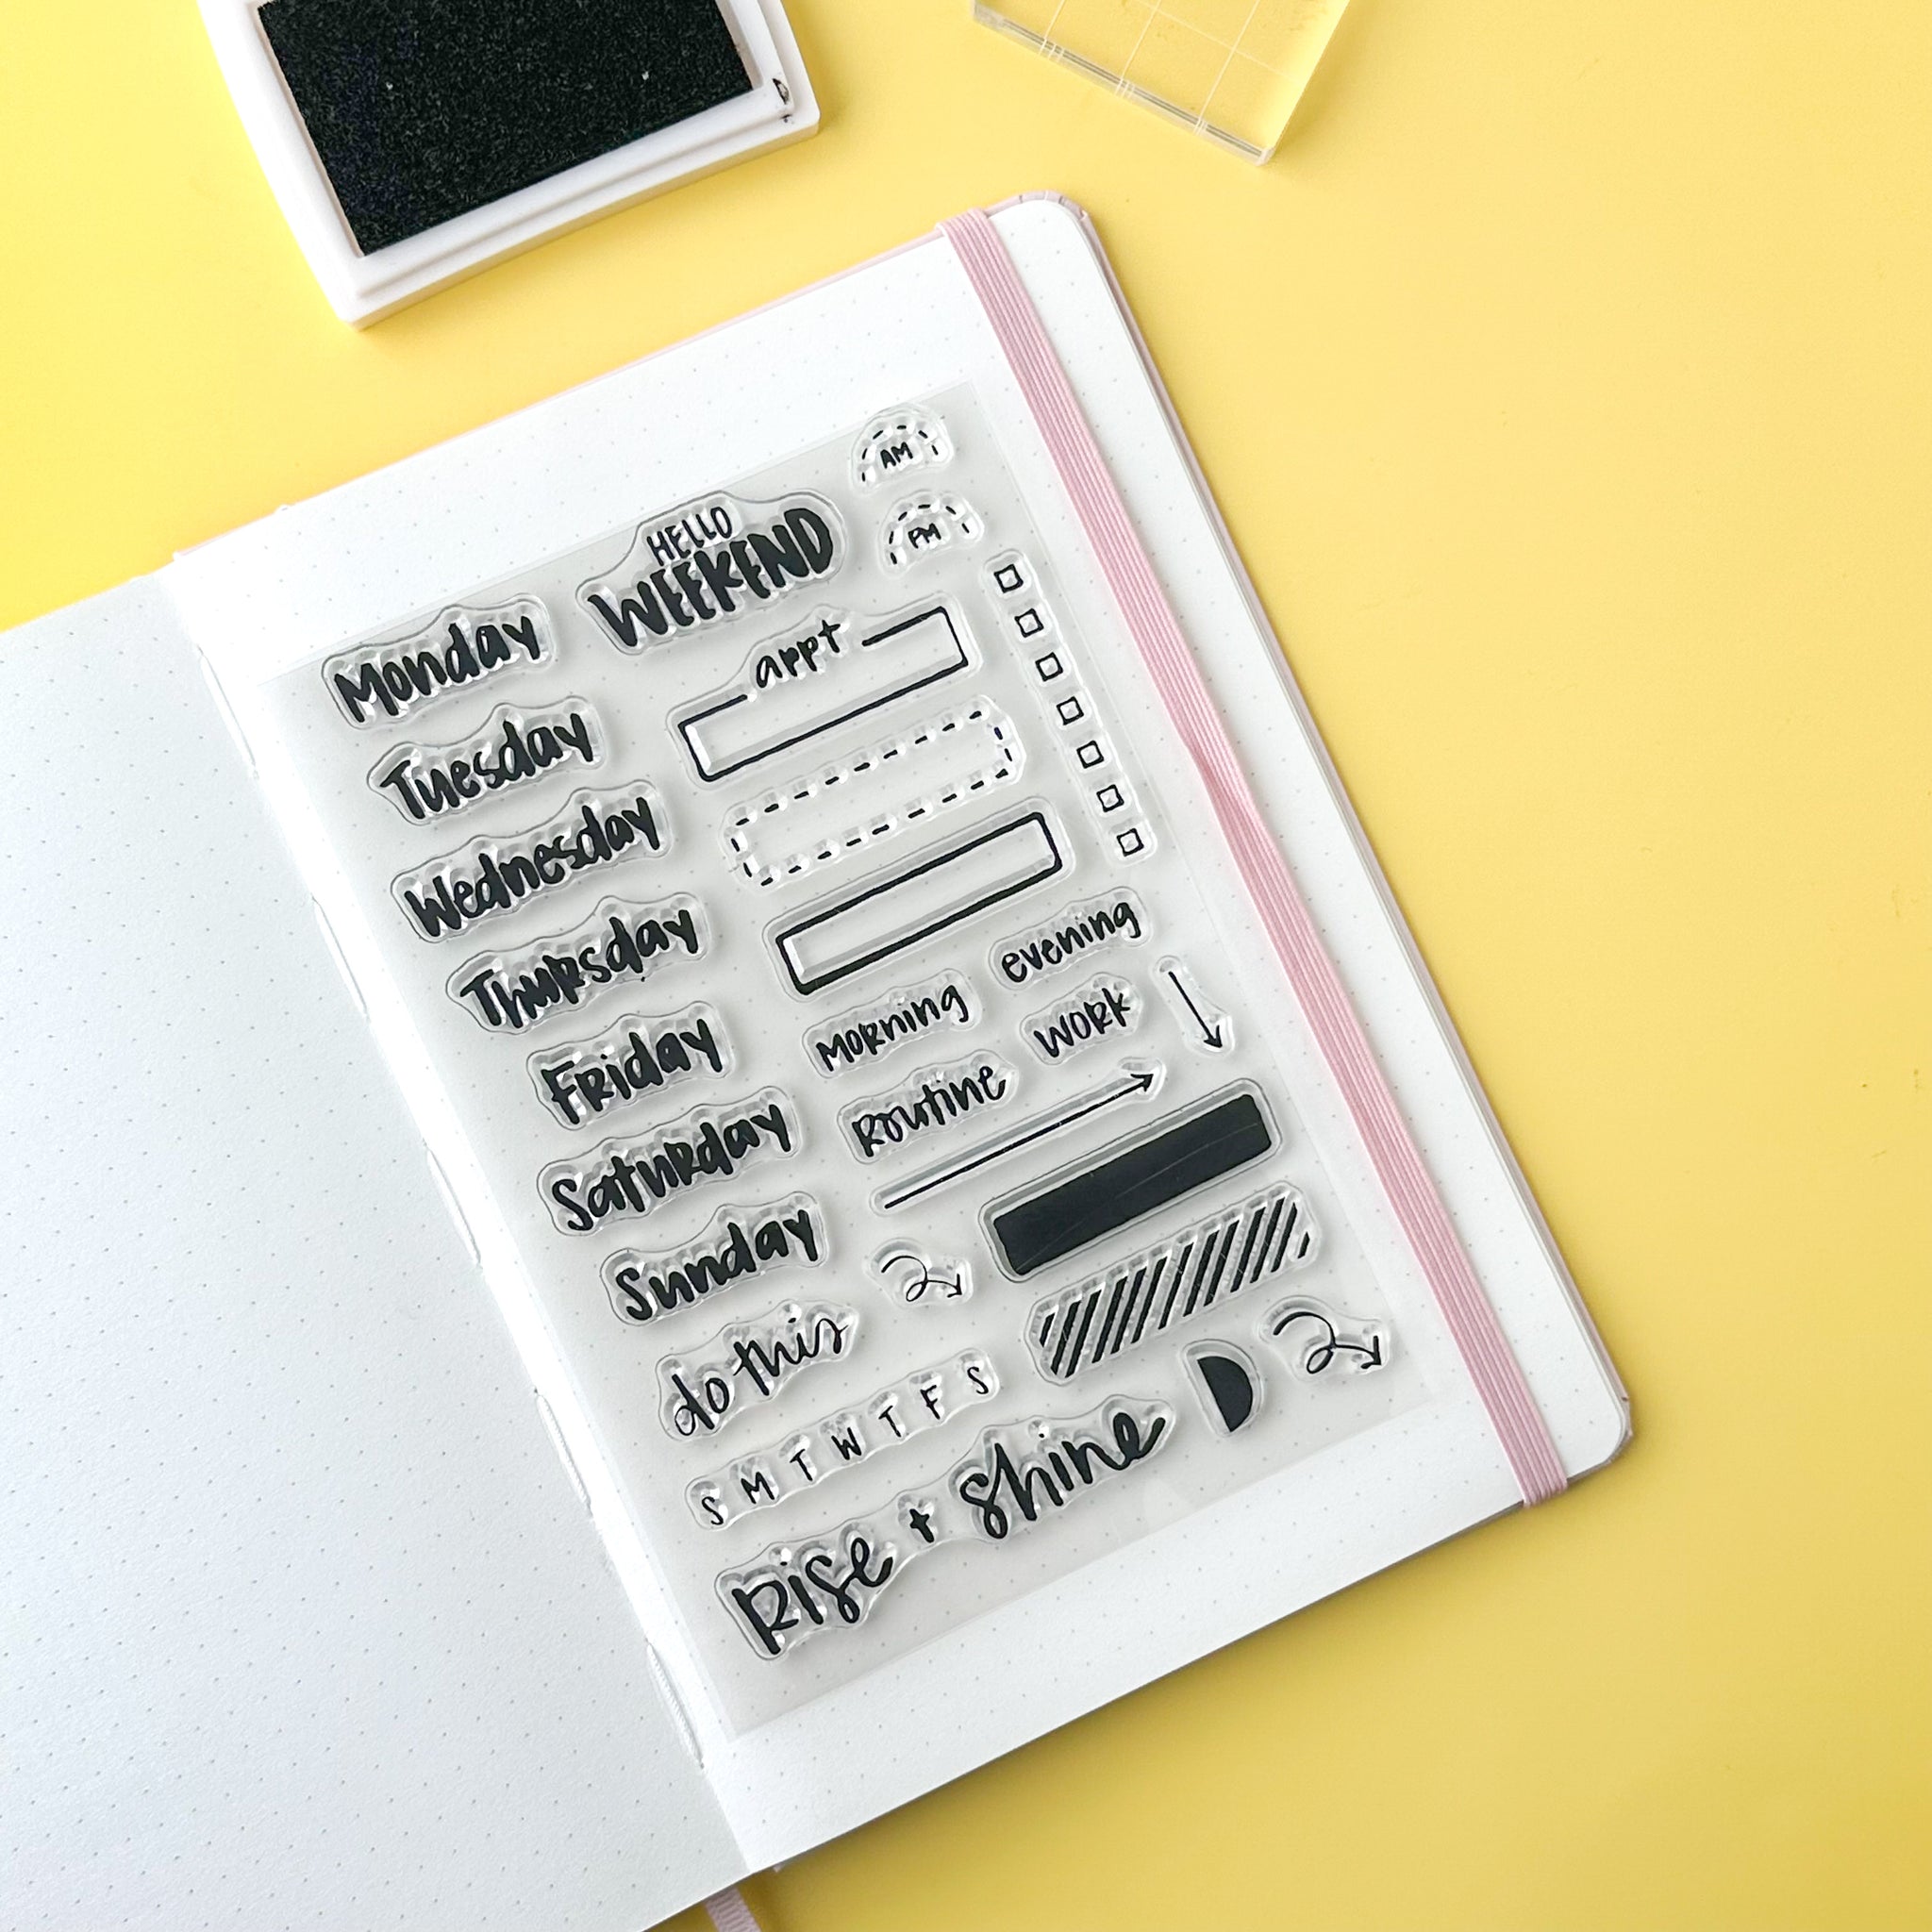 AM
PM
HELLO
WEEKEND
Monday
Tuesday
Wednesday
Thursday
Friday
Saturday
Sunday
do this
S M T W T F S
Rise + shine
appt
evening
morning
work
Routine